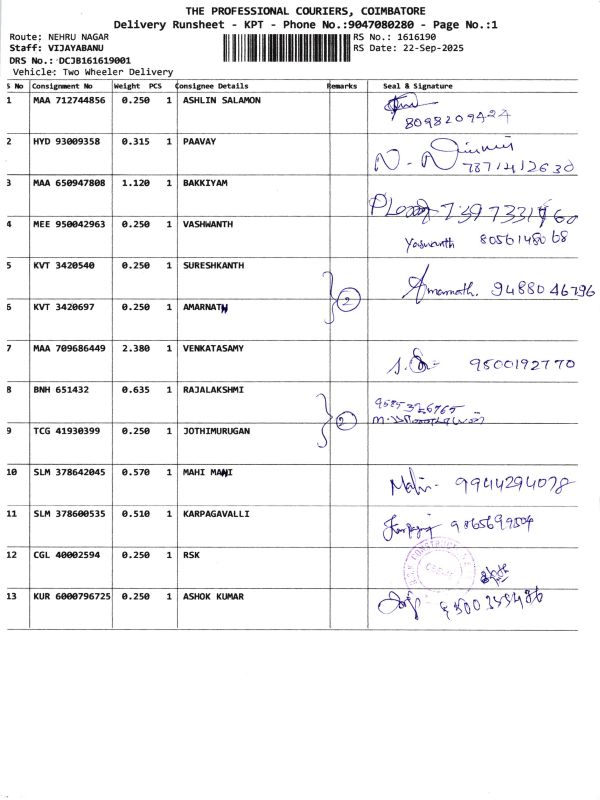 THE PROFESSIONAL COURIERS, COIMBATORE
Delivery Runsheet - KPT - Phone No.:9047080280 - Page No.:1
Route: NEHRU NAGAR RS No.: 1616190
Staff: VIJAYABANU RS Date: 22-Sep-2025
DRS No.: DCJB161619001
Vehicle: Two Wheeler Delivery
S No Consignment No Weight PCS Consignee Details Remarks Seal & Signature
1 MAA 712744856 0.250 1 ASHLIN SALAMON
8098209424
2 HYD 93009358 0.315 1 PAAVAY
7871412630
3 MAA 650947808 1.120 1 BAKKIYAM
4 MEE 950042963 0.250 1 VASHWANTH
Yaswanth 8056148068
5 KVT 3420540 0.250 1 SURESHKANTH
2 Amarnath. 9488046796
6 KVT 3420697 0.250 1 AMARNATH
7 MAA 709686449 2.380 1 VENKATASAMY
9500192770
8 BNH 651432 0.635 1 RAJALAKSHMI
2
9 TCG 41930399 0.250 1 JOTHIMURUGAN
10 SLM 378642045 0.570 1 MAHI MANI
9944294078
11 SLM 378600535 0.510 1 KARPAGAVALLI
9865699504
12 CGL 40002594 0.250 1 RSK
13 KUR 6000796725 0.250 1 ASHOK KUMAR